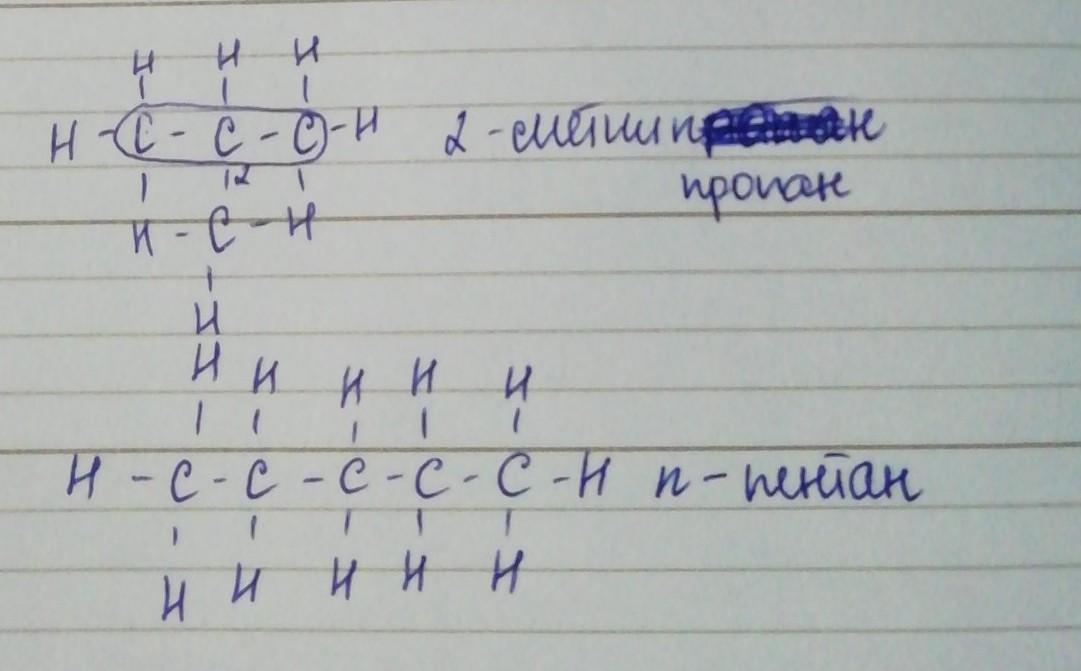 H H H
H - C - C - C - H 2 - метил
2 пропан
H - C - H
H
H H H H H
H - C - C - C - C - C - H n - пентан
H H H H H